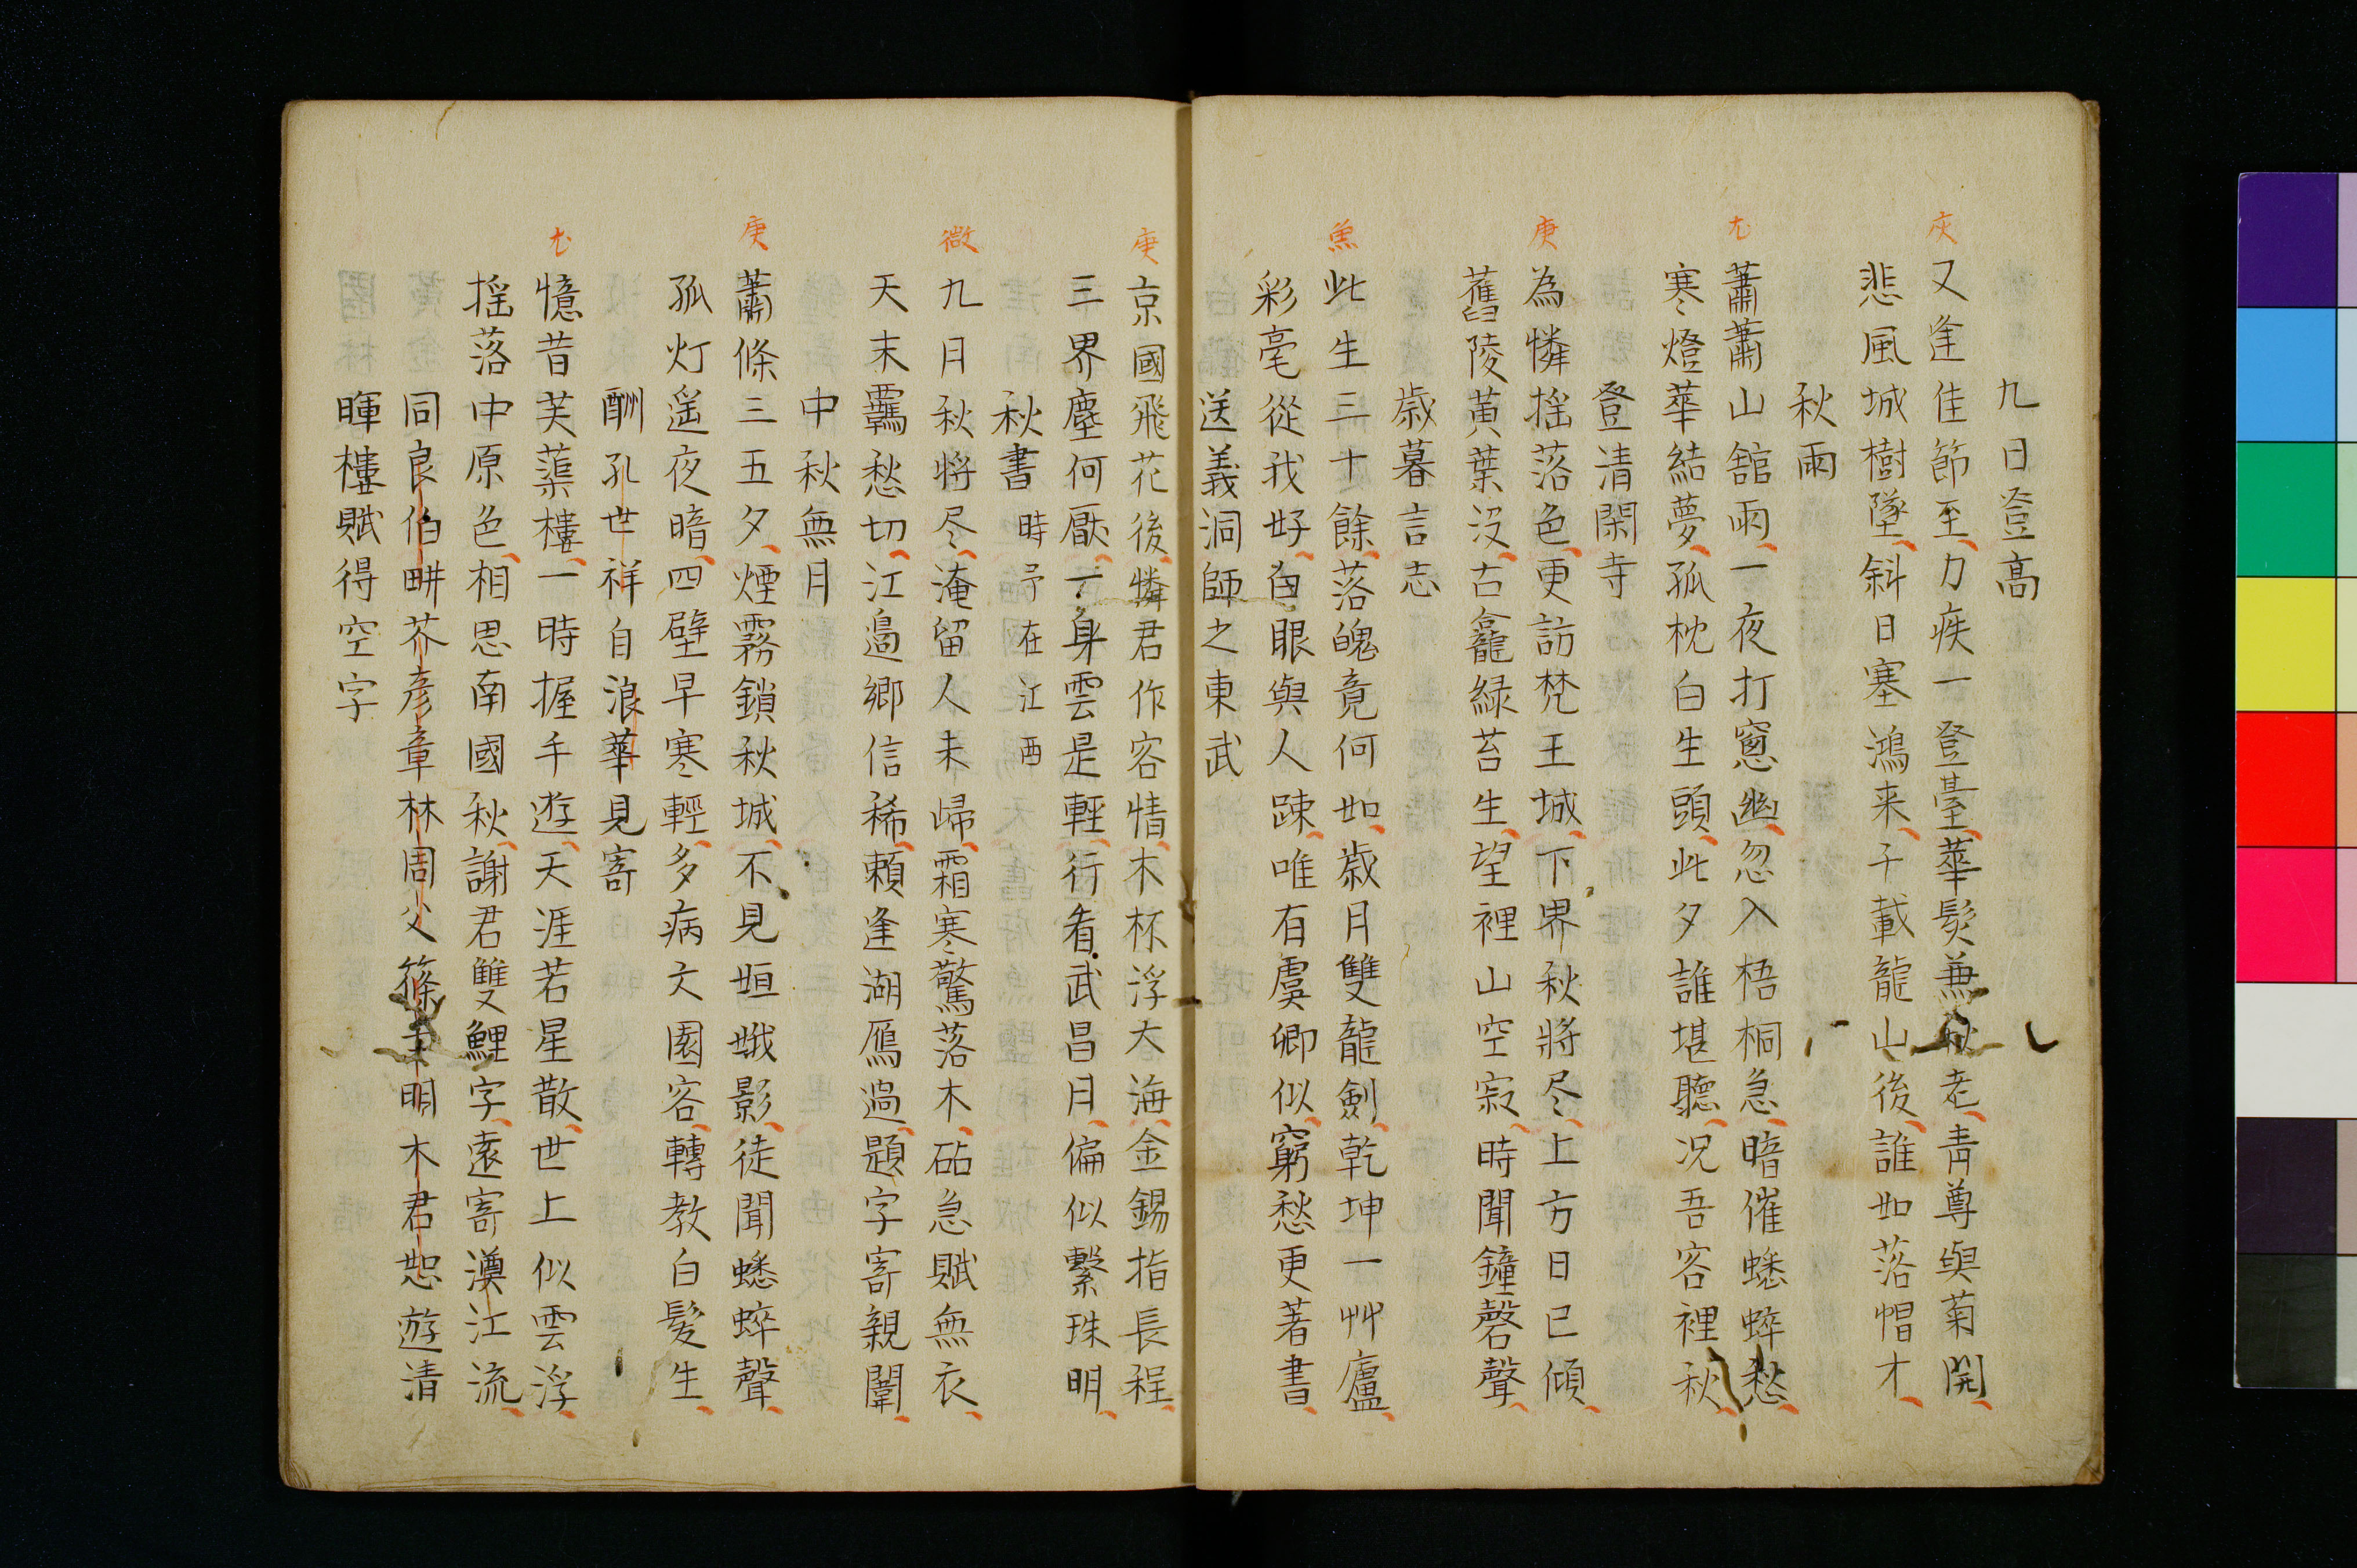 九日登高
灰
又逢佳節至力疾一登臺華髮兼秋老青尊與菊開
悲風城樹墜斜日塞鴻来千載龍山後誰如落帽才
秋雨
尤
蕭蕭山舘雨一夜打窓幽忽入梧桐急暗催蟋蟀愁
寒燈華結夢孤枕白生頭此夕誰堪聽况吾客裡秋
登清閑寺
庚
為憐揺落色更訪梵王城下界秋將尽上方日已傾
舊陵黄葉没古龕緑苔生望裡山空寂時聞鐘磬聲
歳暮言志
魚
此生三十餘落魄竟何如歳月雙龍劍乾坤一艸廬
彩毫從我好白眼與人踈唯有虞卿似窮愁更著書
送義洞師之東武
庚
京國飛花後憐君作客情木杯浮大海金錫指長程
三界塵何厭一身雲是輕行看武昌月偏似繫珠明
秋書 時予在江西
微
九月秋將尽淹留人未歸霜寒驚落木砧急賦無衣
天末覊愁切江邉郷信稀頼逢湖鴈過題字寄親闈
中秋無月
庚
蕭條三五夕煙霧鎖秋城不見姮娥影徒聞蟋蟀聲
孤灯遥夜暗四壁早寒輕多病文園客轉教白髪生
酬孔世祥自浪華見寄
尤
憶昔芙蕖樓一時握手遊天涯若星散世上似雲浮
揺落中原色相思南國秋謝君雙鯉字遠寄澳江流
同良伯畊芥彦章林周父篠士明木君恕遊清
暉樓賦得空字